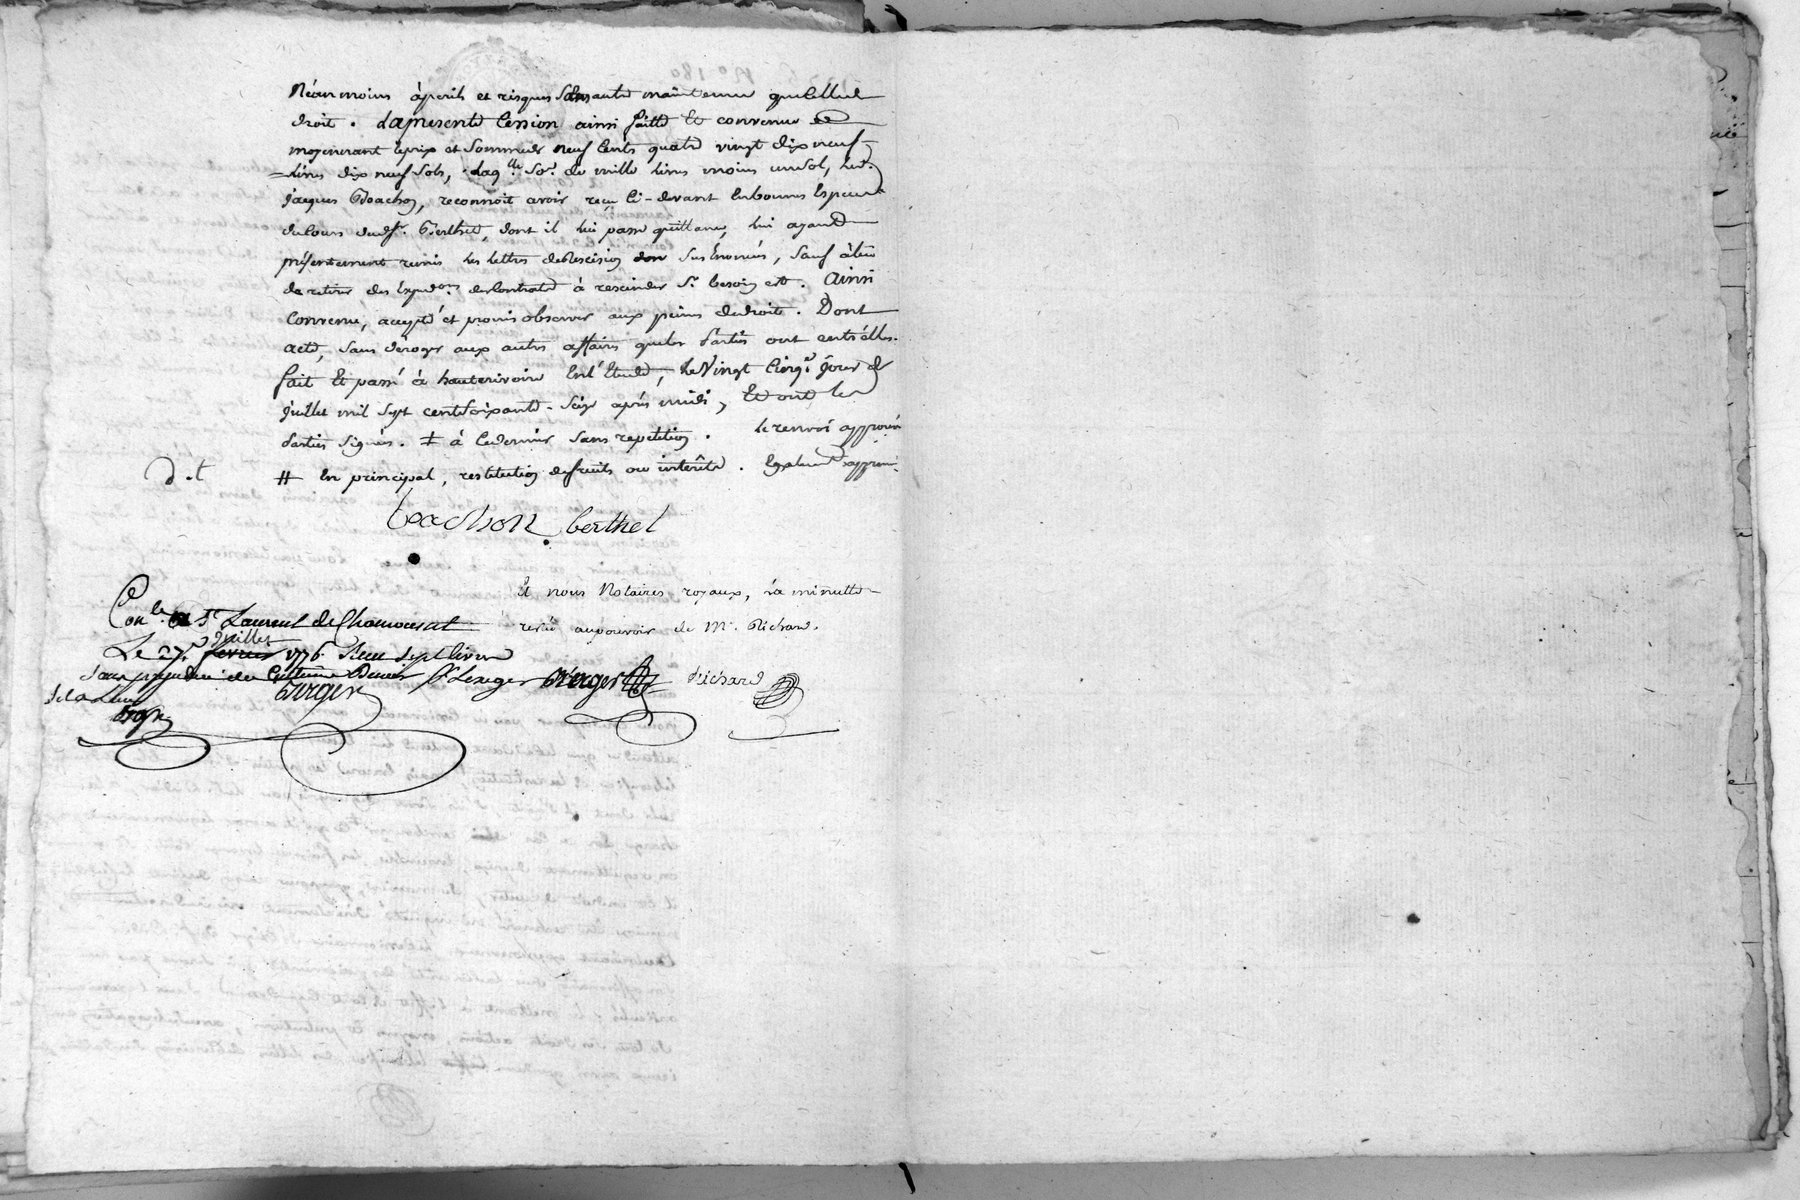 Néanmoins àperils et risques Sans autre maintenue quelle
droit. Laprésente Cession ainsi faitte et convenue
moyennant leprix et Somme de neuf Cents quatre vingt dix neuf
Livres dix neuf sols, laq.lle So.e de mille livres moins un sol, led.
jacques Boachon, reconnoit avoir reçu Ci-devant Enbonnes Espece
ducours dud sr. Berthet, dont il lui passe quittance, lui ayant
présentement remis les lettres deRescision Susénoncées, Sauf
de retirer des Expédons. des Contrats à rescinder Si besoin est. Ainsi
Convenu, accepté et promis observer aux peines dedroit. Dont
acte, Sans déroger aux autres affaires queles Parties ont entr'elles.
fait Et passé à hauterivoire En l'Etude, le Vingt Cinq.e jour de
juillet mil Sept cent Soixante-Seize après midi, Et ont les
Parties signés. ‡ à Cedernier Sans repetition. le renvoi approuvé
d.t # En principal, restitution defruits ou interêts. Egalement approuvé
Boachon Berthet
Et nous Notaires royaux, la minutte
resté aupouvoir de Me. Richard.
Con.lé a St Laurent de Chamousset
Le 27 juillet fevrier 1776 Reçu Sept livres
Sans prejudice du Centieme Denier
Verger
Verger
Richard